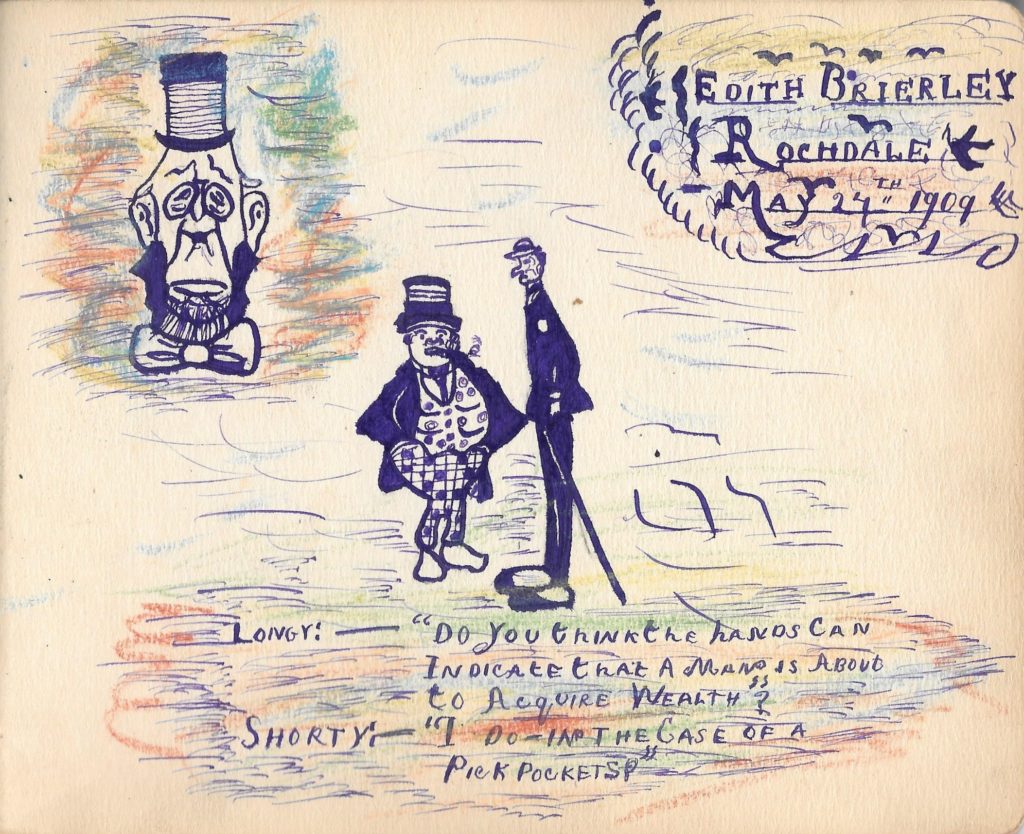 EDITH BRIERLEY
ROCHDALE
MAY 24TH 1909
LONGY:— "DO YOU thinK the hANDS CAN
INDICATE that A MAN IS ABOUt
tO ACQUIRE WEALTH"?
SHORTY:— "I DO-IN THE CASE OF A
PICK POCKETS"